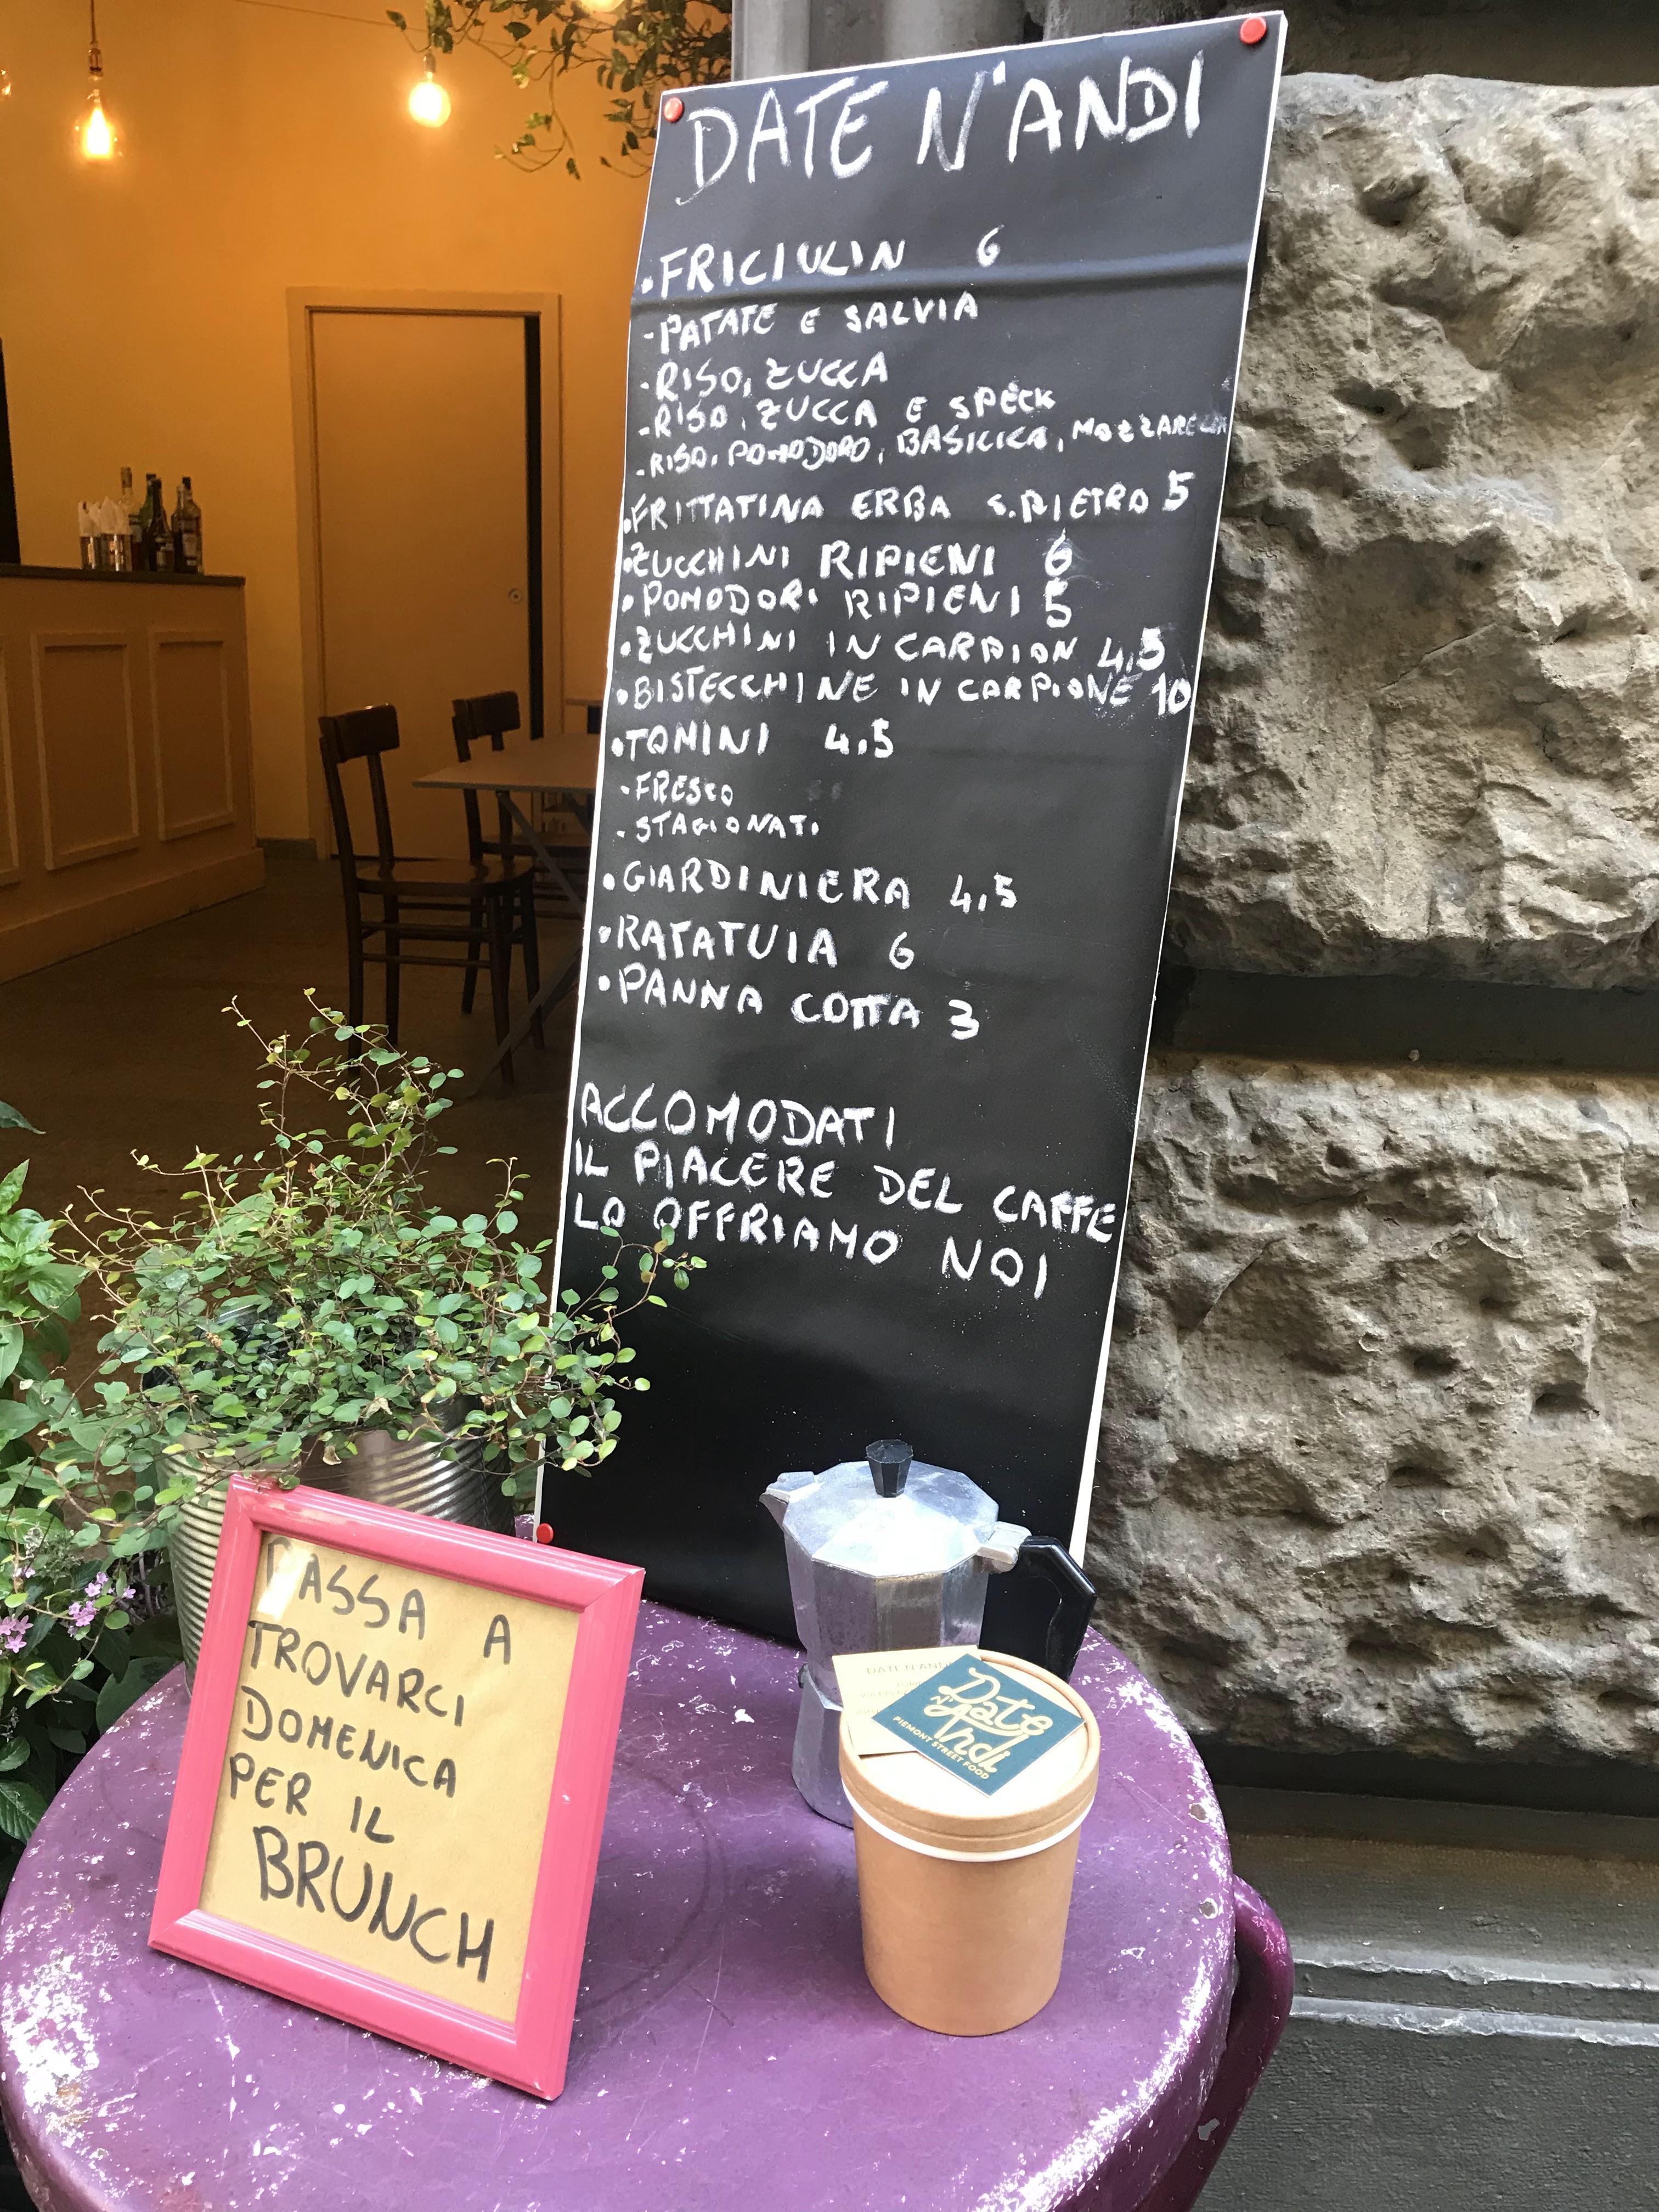 DATE N'ANDI
• FRICIULIN 6
- PATATE E SALVIA
- RISO, ZUCCA
- RISO, ZUCCA E SPECK
- RISO, POMODORO, BASILICO, MOZZARELLA
• FRITTATINA ERBA S. PIETRO 5
• ZUCCHINI RIPIENI 6
• POMODORI RIPIENI 5
• ZUCCHINI IN CARPION 4,5
• BISTECCHINE IN CARPIONE 10
• TOMINI 4,5
- FRESCO
- STAGIONATI
• GIARDINIERA 4,5
• RATATUIA 6
• PANNA COTTA 3
ACCOMODATI
IL PIACERE DEL CAFFE
LO OFFRIAMO NOI
PASSA A
TROVARCI
DOMENICA
PER IL
BRUNCH
DATE N'ANDI
Date
N'
Andi
PIEMONT STREET FOOD